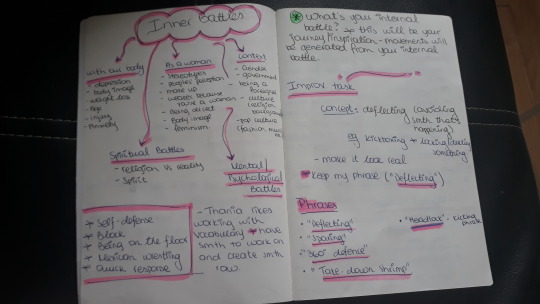 Inner Battles
with our body
- depression
- body image
- weight loss
- Age
- injury
- Anxiety
As a woman
- stereotypes
- peoples perception
- make up
- weaker because you're a woman
- Being direct
- Body image
- feminism
Context
- Gender
- government
- being a foreigner
- culture
- religion
- background
- pop culture
(fashion
Spiritual Battles
- religion vs reality
- Spirit
Mental/
Psychological
Battles
+ Self-defense
+ Block
+ Being on the floor
+ Mexican wrestling
+ Quick response
- Thania likes
working with
vocabulary + have
smth to work on
and create smth
raw.
What's your internal
battle? + this will be your
journey/inspiration - movements will
be generated from your internal
battle.
Improv task
concept: deflecting (avoiding
smth that's
happening)
eg kickboxing +
something
- make it look real
keep my phrase ("Deflecting")
Phrases
- "Deflecting"
- "Sparring"
- "360° defense"
- "Take-down shrimp"
- "Headlock" -
phrase